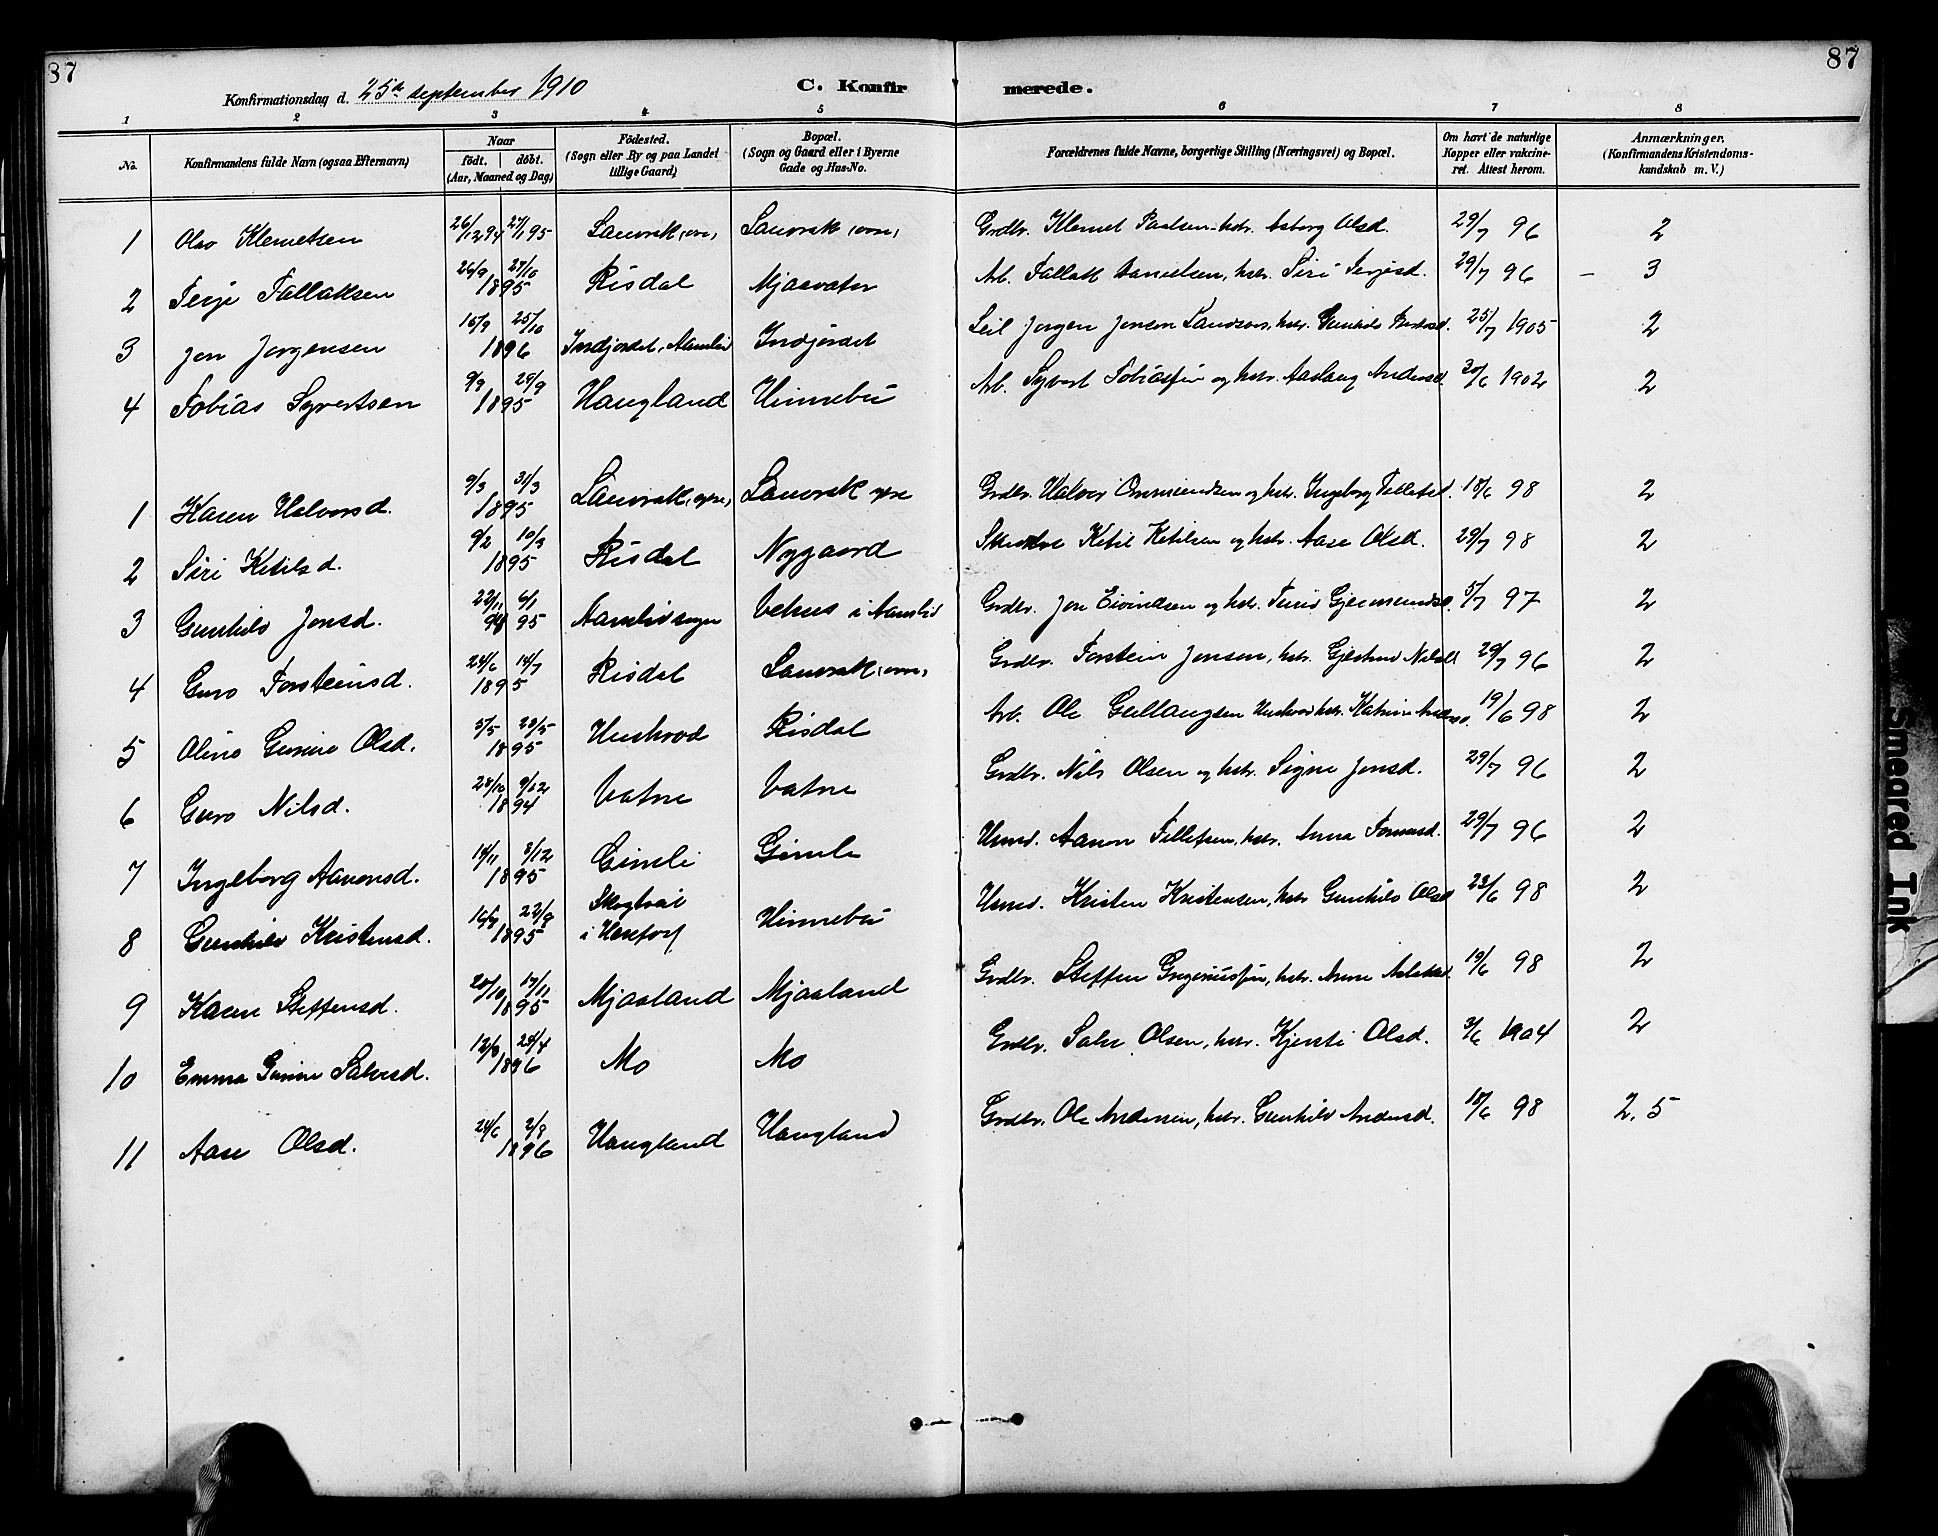 87
87
Konfirmationsdag d. 25de september 1910
C. Konfirmerede.
1 2 3 4 5 6 7 8
No. Konfirmandens fulde Navn (ogsaa Efternavn) Naar födt. döbt. (Aar, Maaned og Dag) Födested. (Sogn eller By og paa Landet tillige Gaard) Bopæl. (Sogn og Gaard eller i Byerne Gade og Hus-No. Forældrenes fulde Navne, borgerlige Stilling (Næringsvei) og Bopæl. Om havt de naturlige Kopper eller vakcineret. Attest herom. Anmærkninger. (Konfirmandens Kristendomskundskab m. V.)
1 Olav Klemetsen 26/12 94 27/1 95 Lauvrak Lauvrak Grdbr. Klemet Paalsen hstr. Asborg Olsd. 29/7 96 2
2 Terje Tallaksen 26/9 27/10 1895 Risdal Mjaavatn Arb. Tallak Danielsen, hstr. Siri Terjesd. 29/7 96 – 3
3 Jon Jorgensen 15/9 25/10 1896 Indjordet, Aamlid Indjordet Jorgen Jonsen hstr. Gunhild 25/7 1905 2
4 Tobias Syvertsen 9/9 29/9 1895 Haugland Hinnebu Arb. Syvert Tobiasen og hstr. Aaslaug Andersd. 30/6 1902 2
1 Karen Halvorsd. 9/3 31/3 1895 Lauvrak, øvre, Lauvrak øvre Grdbr. Halvor Ommundsen og hstr. Ingeborg 18/6 98 2
2 Siri Ketilsd. 9/2 10/3 1895 Risdal Nygaard Ketil Ketilsen og hstr. Aase Olsd. 29/7 98 2
3 Gunhild Jonsd. 22/11 94 6/1 95 Aamlid sogn Vehus i Aamlid Grdbr. Jon Eivindsen og hstr. Turid 5/7 97 2
4 Guro Torsteinsd. 23/6 14/7 1895 Risdal Lauvrak Grdbr. Torstein Jonsen, hstr. Gjertrud Nilsd 29/7 96 2
5 Oline Gurine Olsd. 5/5 23/5 1895 Huskvod Risdal Arb. Ole Gullaugsen 19/6 98 2
6 Guro Nilsd. 28/10 9/12 1894 Vatne Vatne Grdbr. Nils Olsen og hstr. Signe Jonsd. 29/7 96 2
7 Ingeborg Aanonsd. 14/11 8/12 1895 Gimle Gimle Husmd. Aanon Tellefsen, hstr. Anna 29/7 96 2
8 Gunhild Kristensd. 22/9 1895 i Herefoss Hinnebu Husmd. Kristen Kristensen, hstr Gunhild Olsd 23/6 98 2
9 Karen Steffensd. 20/10 17/11 1895 Mjaaland Mjaaland Grdbr. Steffen Gregeriussen, hstr. Anne 19/6 98 2
10 Emma Gurine Salvesd. 25/4 1896 Mo Mo Grdbr. Salve Olsen, hstr. Kjersti Olsd. 3/6 1904 2
11 Aase Olsd. 24/6 2/8 1896 Haugland Haugland Grdbr. Ole Andersen, hstr. Gunhild Andersd. 18/6 98 2,5
Smeared Ink